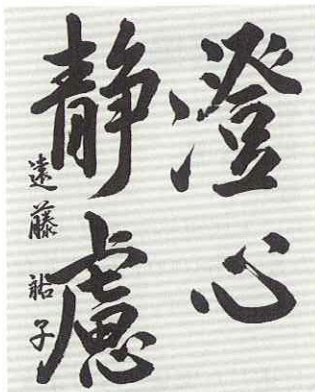 澄心
静慮
遠藤祐子